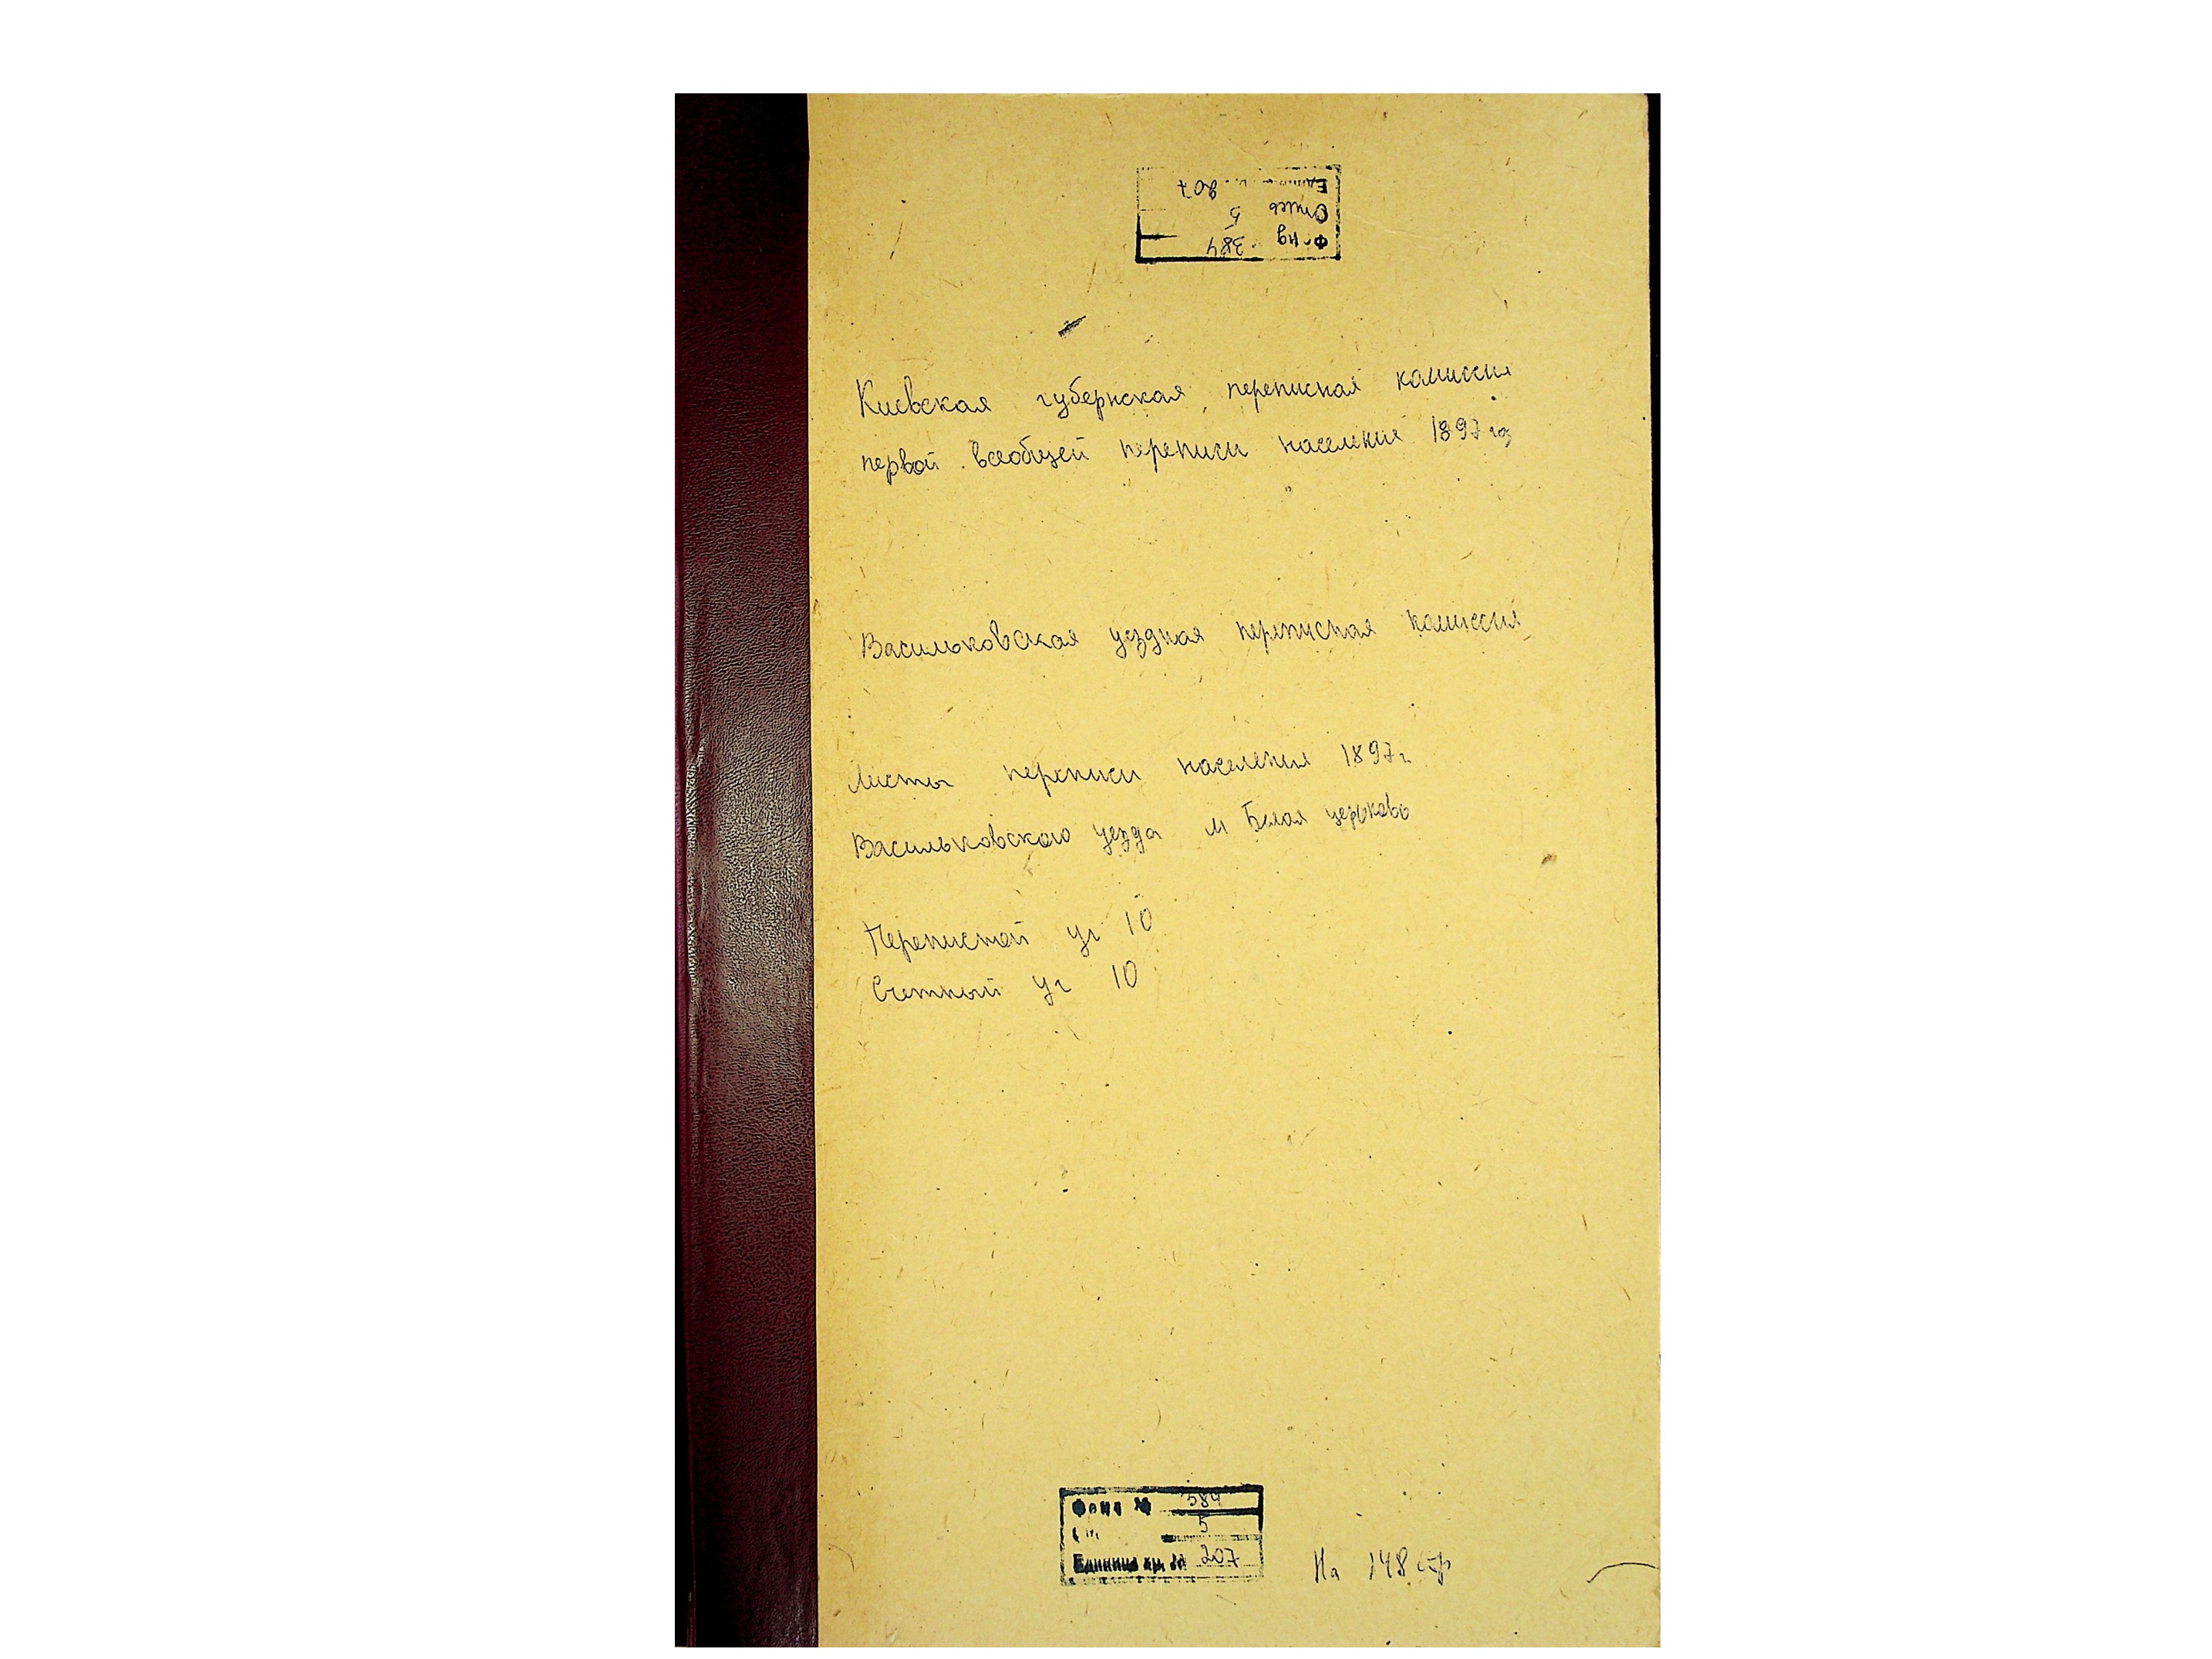 Фонд 384
Опись 5
207
Киевская губернская переписная комиссия
первой всеобщей переписи население 1897 г.
Васильковская уездная переписная комиссия
Листы переписи населения 1897 г.
Васильковского уезда м Белая церьковь
Переписной уч 10
Счетный уч 10
Фонд № 384
5
Единица хр. № 207
На 148 стр